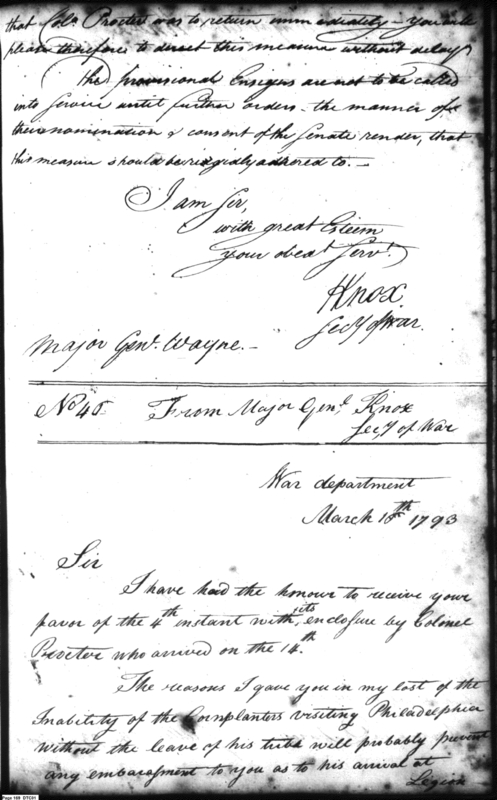 that Colo Procter was to return immediately – you will
please therefore to direct this measure without delay
The provisional Ensigns are not to be called
into Service until further orders – the manner of
their nomination & consent of the Senate render, that
this measure should be ridgidly adhered to. –
I am Sir,
with great Esteem
your obedt Servt.
HKnox.
Secy of War.
Major Genl. Wayne. –
No 45 From Major Genl. Knox
Secy of War
War department
March 16th 1793
Sir
I have had the honour to receive your
favor of the 4th instant with its enclosure by Colonel
Procter who arrived on the 14th.
The reasons I gave you in my last of the
Inability of the Cornplanters visiting Philadelphia
without the leave of his tribe will probably prevent
any embarassment to you as to his arrival at
Legion
Page 169 DTC01